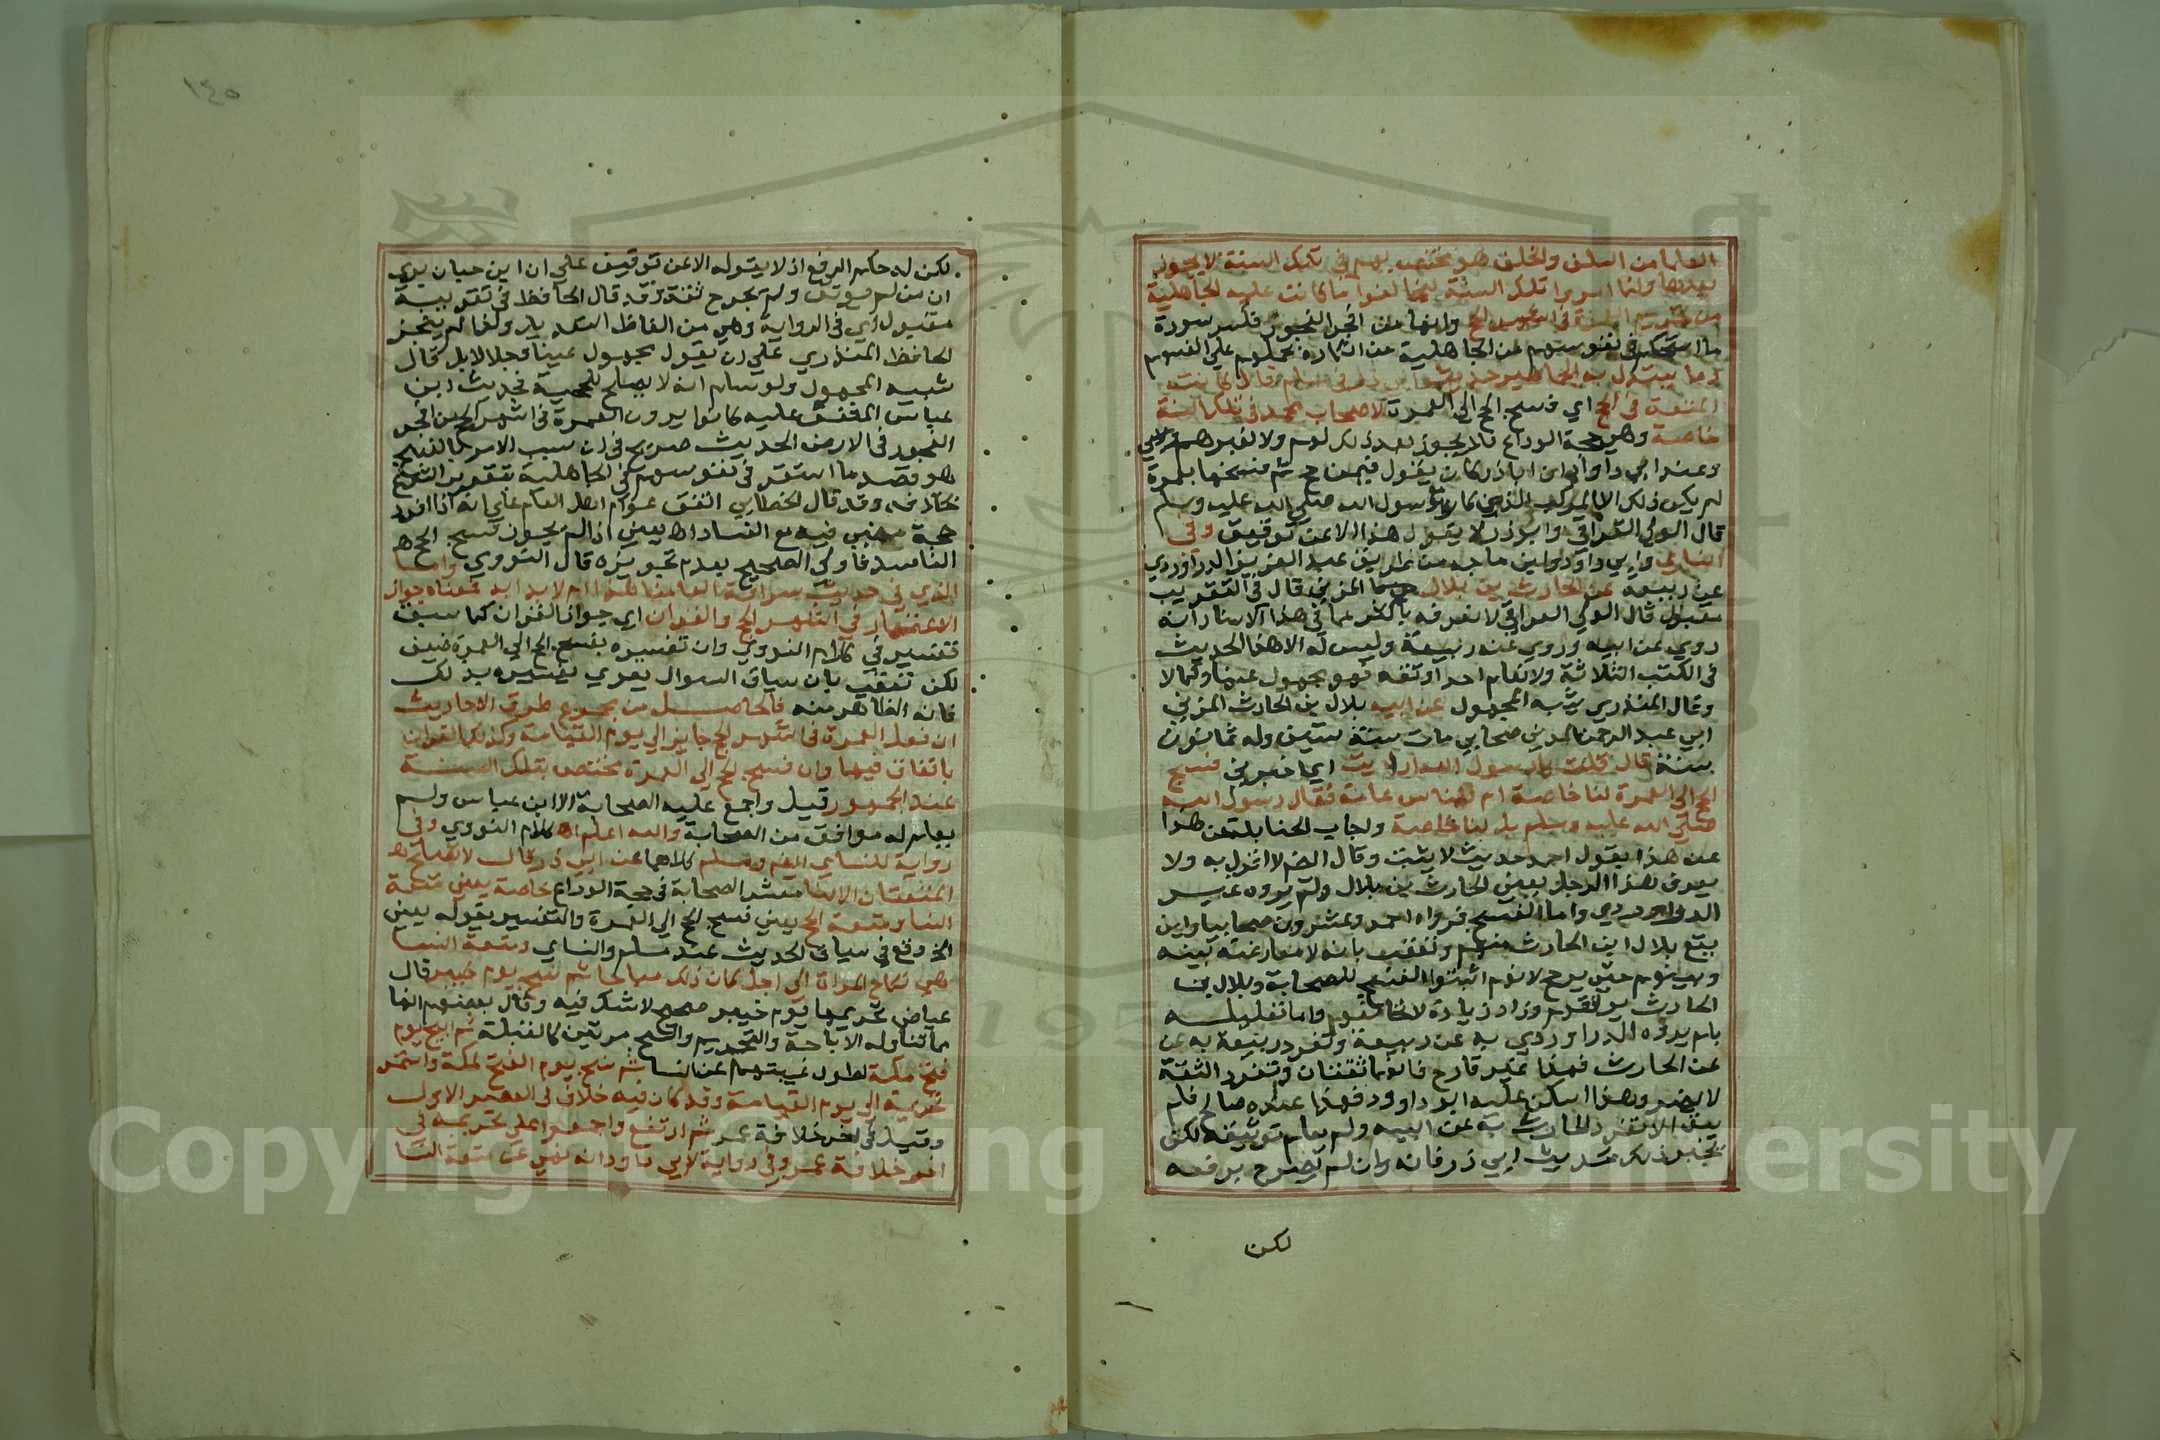 العلما من السلف والخلف هو مختص بهم في تلك السنة لا يجوز
بعدها وانما امروا تلك السنة ليخالفوا ما كانت عليه الجاهلية
من تحريم العمرة في اشهر الحج وانها من افجر الفجور فكسر سورة
ما استحكم في نفوسهم من الجاهلية من انكاره بحملهم على انفسهم
المتعة في الحج اي فسخ الحج الى العمرة لاصحاب محمد في تلك السنة
خاصة وهي حجة الوداع فلا يجوز بعد ذلك لهم ولا لغيرهم
وعند ابي داود ان ابا ذر كان يقول فيمن حج ثم فسخها بعمرة
لم يكن ذلك الا للركب الذين كانوا مع رسول الله صلى الله عليه وسلم
قال الولي العراقي وابو ذر لا يقول هذا الا عن توقيف وفي
النساي وابي داود وابن ماجه من طريق عبد العزيز الدراوردي
عن ربيعة عن الحارث بن بلال المزني قال في التقريب
مقبول قال الولي العراقي لا نعرفه باكثر مما في هذا الاسناد انه
روي عن ابيه وروي عنه ربيعة وليس له الا هذا الحديث
في الكتب الثلاثة ولا نعلم احدا وثقه فهو مجهول عينا وحالا
وقال المنذري شبه المجهول عن ابيه بلال بن الحارث المزني
ابي عبد الرحمن المدني صحابي مات سنة ستين وله ثمانون
سنة قال قلت يا رسول الله ارايت اي اخبرني فسخ
الحج الى العمرة لنا خاصة ام للناس عامة فقال رسول الله
صلى الله عليه وسلم بل لنا خاصة واجاب الحنابلة عن هذا
عن هذا بقول احمد حديث لا يثبت وقال ايضا لا اقول به ولا
يعرف هذا الرجل يعني الحارث بن بلال ولم يروه غير
الدراوردي واما الفسخ فرواه احد وعشرون صحابيا واين
يقع بلال بن الحارث منهم وتعقب بانه لا معارضة بينه
وبينهم حتى يرجح لانهم اثبتوا الفسخ للصحابة وبلال بن
الحارث يوافقهم وزاد زيادة لا تخالفهم واما تعليله
بانه يروه الدراوردي به عن ربيعة وتفرد ربيعة به عن
عن الحارث فهذا غير قادح فانهما ثقتان وتفرد الثقة
لا يضر وهذا اسكت عليه ابو داوود فهذا عنده صالح فلم
يبق الا تفرد الحارث به عن ابيه ولم يعلم توثيقه لكن
يجبر ذلك حديث ابي ذر فانه وان لم يصرح برفعه
لكن
١٤٥
لكن له حكم الرفع اذ لا يقوله الا عن توقيف على ان ابن حبان يرى
ان من لم يوثق ولم يجرح ثقة وقد قال الحافظ في تقريبه
مقبول اي في الرواية وهي من الفاظ التعديل ولذا لم يتجز
الحافظ المنذري على ان يقول مجهول عينا وحالا بل قال
شبيه المجهول ولو سلم انه لا يصلح للحجية فحديث ابن
عباس المتفق عليه كانوا يرون العمرة في اشهر الحج من افجر
الفجور في الارض الحديث صريح في ان سبب الامر بالفسخ
هو قصد ما استقر في نفوسهم في الجاهلية بتقرير الشرع
خلافه وقد قال الخطابي اتفق عوام اهل العلم على انه اذا افسد
حجه مضى فيه مع الفساد اه يعني اذا لم يجوز فسخ الحج
الفاسد فاولى الصحيح بعدم تجويزه قال النووي واما
الذي في حديث سراقة العامنا هذا ام لابد ابد فمعناه جواز
الاعتمار في اشهر الحج والقران اي جواز القران كما سبق
تفسيره في كلام النووي وان تفسيره بفسخ الحج الى العمرة ضعيف
لكن تعقب بان سياق السوال يقوي تفسيره بذلك
فانه الظاهر منه فالحاصل من مجموع طرق الاحاديث
ان فعل العمرة في اشهر الحج جايز الى يوم القيامة وكذلك القران
باتفاق فيهما وان فسخ الحج الى العمرة مختص بتلك السنة
عند الجمهور قيل واجمع عليه الصحابة الا ابن عباس ولم
يعلم له موافق من الصحابة والله اعلم اه كلام النووي وفي
رواية للنساي ايضا ومسلم كلاهما عن ابي ذر قال لا تصلح
المتعتان الا لنا معشر الصحابة في حجة الوداع خاصة يعني متعة
النسا ومتعة الحج يعني فسخ الحج الى العمرة والتفسير بقوله يعني
الخ وقع في سياق الحديث عند مسلم والنساي ومتعة النسا
هي نكاح المراة الى اجل كان ذلك مباحا ثم نسخ يوم خيبر قال
عياض تحريمها يوم خيبر صحيح لا شك فيه وقال بعضهم انها
مما تناوله الاباحة والتحريم والنسخ مرتين كالقبلة ثم ابيح يوم
فتح مكة لطول غيبتهم عن النسا ثم نسخ يوم الفتح لمكة واستمر
تحريمه الى يوم القيامة وقد كان فيه خلاف في العصر الاول
وقيل في اخر خلافة عمر ثم ارتفع واجمعوا على تحريمه في
اخر خلافة عمر وفي رواية لابي داود انه نهى عن متعة النسا
Copyright © King Saud University
1957